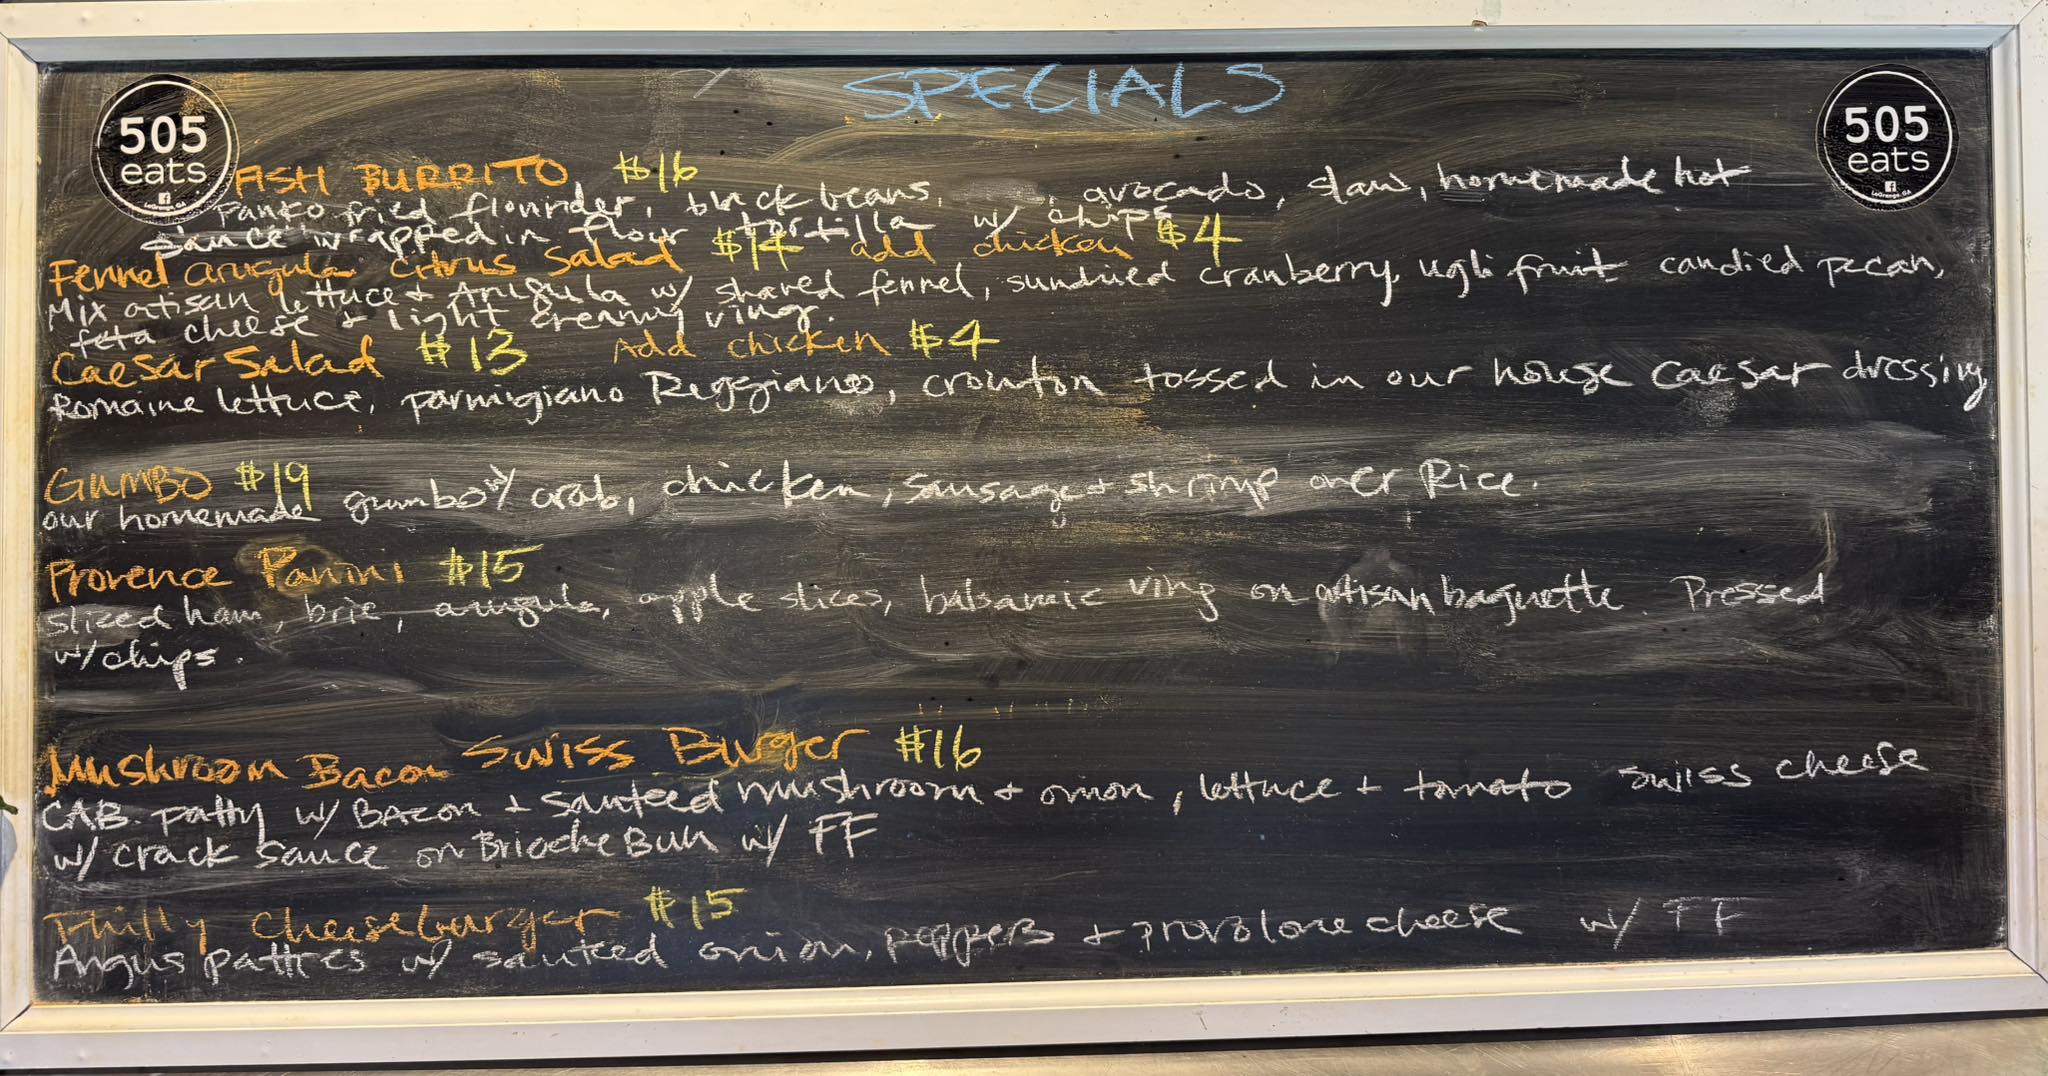 SPECIALS
505
eats
LaGrange, GA
505
eats
LaGrange, GA
FISH BURRITO $16
Panko fried flounder, black beans, avocado, slaw, homemade hot
sauce wrapped in flour tortilla w/ chips
Fennel arugula citrus Salad $14 add chicken $4
Mix artisan lettuce + Arugula w/ shaved fennel, sundried cranberry, ugli fruit candied pecan,
feta cheese + light creamy ving.
Caesar Salad $13 Add chicken $4
Romaine lettuce, parmigiano Reggianos, crouton tossed in our house caesar dressing
GUMBO $19
our homemade gumbo w/ crab, chicken, sausage + shrimp over Rice.
Provence Panini $15
sliced ham, brie, arugula, apple slices, balsamic ving on artisan baguette. Pressed
w/ chips.
Mushroom Bacon Swiss Burger $16
CAB. patty w/ Bacon + sauteed mushroom + onion, lettuce + tomato swiss cheese
w/ crack sauce on Brioche Bun w/ FF
Philly Cheeseburger $15
Angus patties w/ sauteed onion, peppers + provolone cheese w/ FF